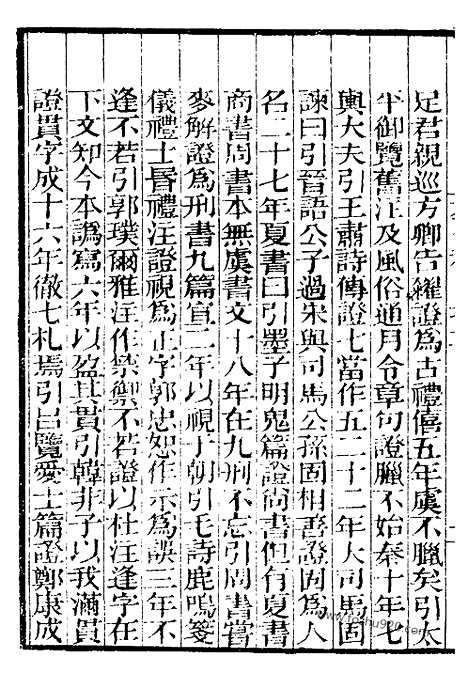 足君親巡方卿告糴證爲古禮僖五年虞不臘矣引太
平御覽舊注及風俗通月令章句證臘不始秦十年七
輿大夫引王肅詩傳證七當作五二十二年大司馬固
諫曰引晉語公子過宋與司馬公孫固相善證固爲人
名二十七年夏書曰引墨子明鬼篇證尚書但有夏書
商書周書本無虞書文十八年在九刑不忘引周書嘗
麥解證爲刑書九篇宣二年以視于朝引毛詩鹿鳴箋
儀禮士昏禮注證視爲正字郭忠恕作示爲誤三年不
逢不若引郭璞爾雅注作禁禦不若證以杜注逢字在
下文知今本譌寫六年以盈其貫引韓非子以我滿貫
證貫字成十六年徹七札焉引呂覽愛士篇證鄭康成